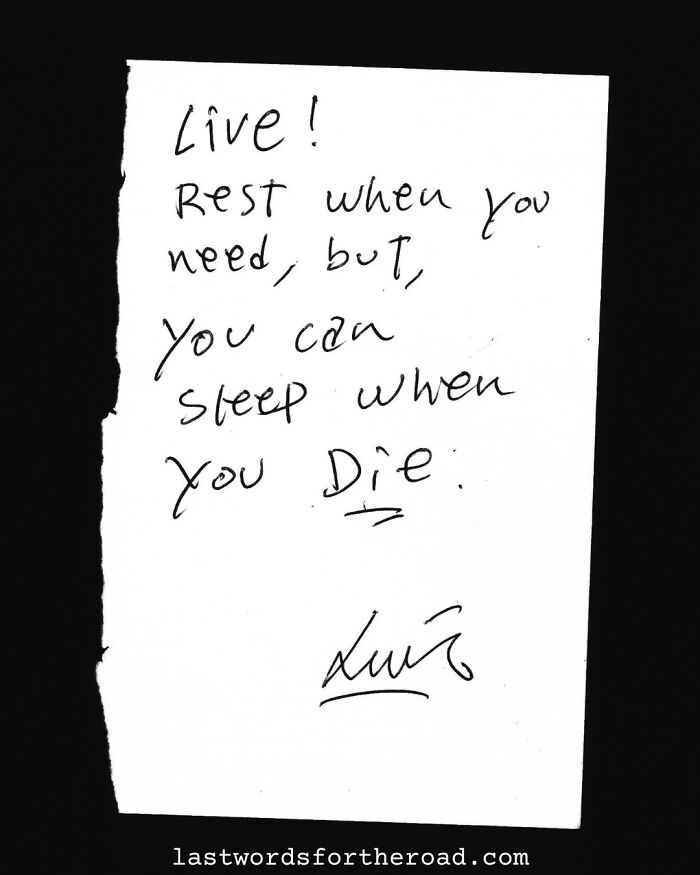 Live!
Rest when you
need, but,
you can
sleep when
you Die.
Luis
lastwordsfortheroad.com